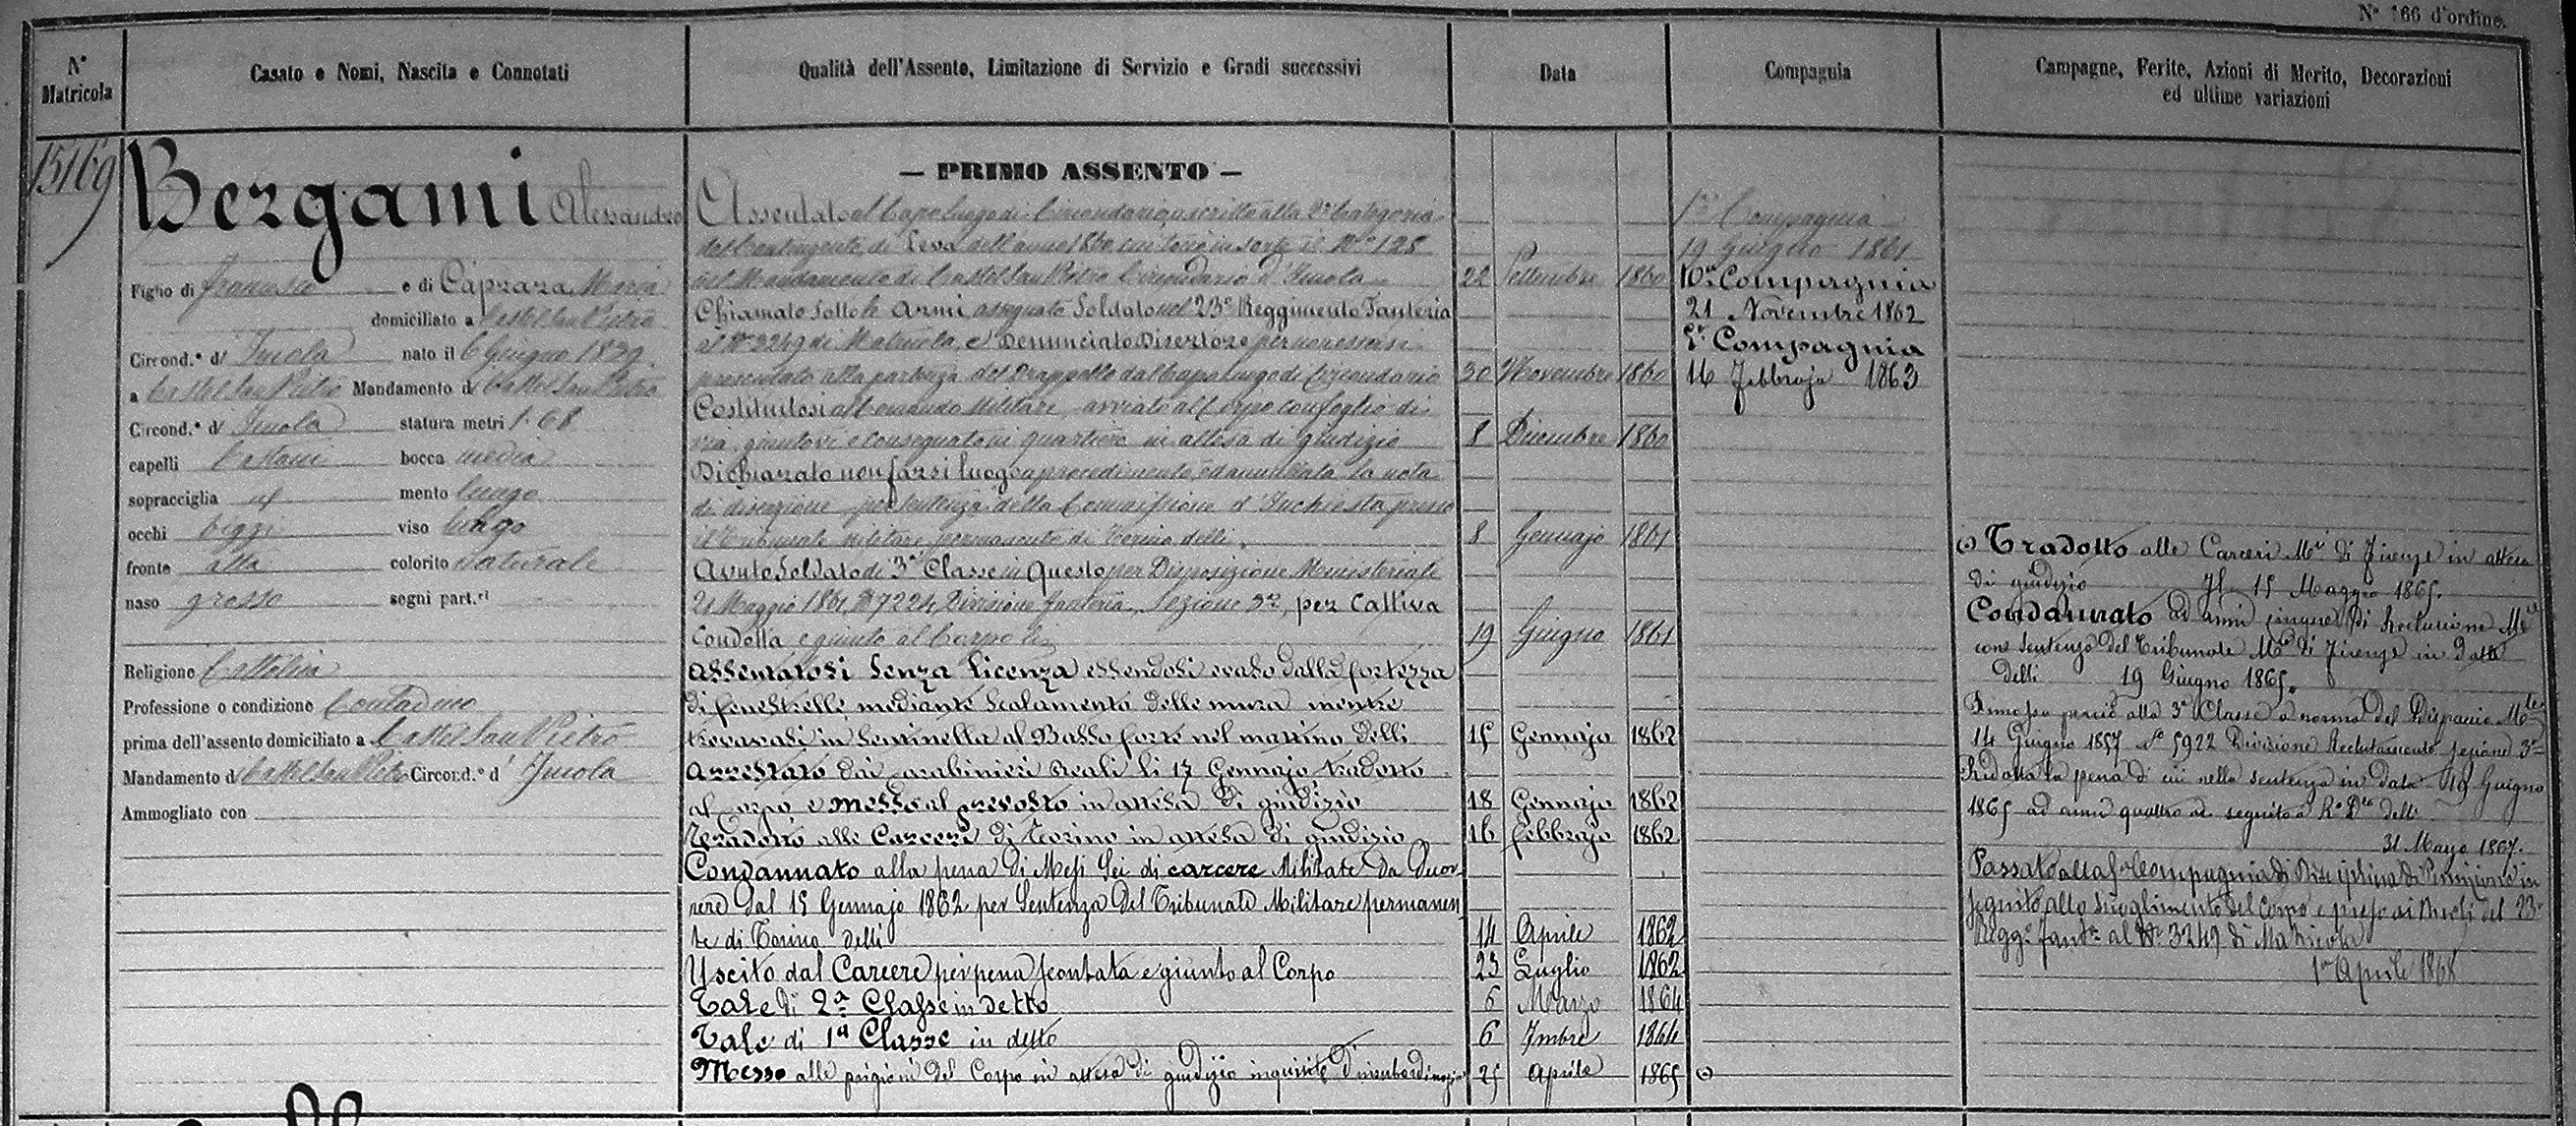 N° 166 d'ordine.
N° Matricola
Casato e Nomi, Nascita e Connotati
Qualità dell'Assento, Limitazione di Servizio e Gradi successivi
Data
Compagnia
Campagne, Ferite, Azioni di Merito, Decorazioni
ed ultime variazioni
15169
Bergami Alessandro
Figlio di Francesco e di Caprara Maria
domiciliato a Castel San Pietro
Circond.° d' Imola nato il 6 Giugno 1839
a Castel San Pietro Mandamento di Castel San Pietro
Circond.° d' Imola statura metri 1.68
capelli Castani bocca media
sopracciglia id mento lungo
occhi bigi viso lungo
fronte alta colorito naturale
naso grosso segni part.ri
Religione Cattolica
Professione o condizione Contadino
prima dell'assento domiciliato a Castel San Pietro
Mandamento di Castel San Pietro Circond.° d' Imola
Ammogliato con
— PRIMO ASSENTO —
Assentato al Capo luogo di Circondario, ascritto alla 2ª Categoria
del Contingente di Leva dell'anno 1860 in sorte il N° 128
nel Mandamento di Castel San Pietro Circondario d'Imola 22 Settembre 1860
Chiamato sotto le Armi, assegnato Soldato nel 23° Reggimento Fanteria
al N° 3249 di Matricola, e Denunciato Disertore per non essersi
presentato alla partenza del Drappello dal Capo luogo di Circondario 30 Novembre 1860
Costituitosi al Comando Militare, avviato al Corpo con foglio di
via, giuntovi e consegnato in quartiere in attesa di giudizio 8 Dicembre 1860
Dichiarato non farsi luogo a procedimento, ed annullata la nota
di diserzione per sentenza della Commissione d'Inchiesta presso
il Tribunale militare permanente di Torino delli 8 Gennajo 1861
Avuto Soldato di 3ª Classe in Questo per Disposizione Ministeriale
21 Maggio 1861, N° 7224, Divisione fanteria, Sezione 3ª, per Cattiva
Condotta e giunto al Corpo li 19 Giugno 1861
Assentatosi Senza Licenza essendosi evaso dalla fortezza
di fenestrelle mediante Scalamento delle mura mentre
trovavasi in Sentinella al Basso forte nel mattino delli 15 Gennajo 1862
Arrestato dai Carabinieri Reali li 17 Gennajo tradotto
al Corpo, e messo al prevosto in attesa di giudizio 18 Gennajo 1862
Tradotto alle Carceri di Torino in attesa di giudizio 16 febbrajo 1862
Condannato alla pena di Mesi Sei di carcere Militare da Decor
rere dal 15 Gennajo 1862 per Sentenza del Tribunale Militare permanen
te di Torino delli 14 Aprile 1862
Uscito dal Carcere per pena scontata e giunto al Corpo 23 Luglio 1862
Tale di 2ª Classe in detto 6 Marzo 1864
Tale di 1ª Classe in detto 6 7mbre 1864
Messo alle prigioni del Corpo in attesa di giudizio inquisito d'insubordinazio 25 Aprile 1865
1ª Compagnia
19 Giugno 1861
10ª Compagnia
21 Novembre 1862
Compagnia
16 Febbrajo 1863
Tradotto alle Carceri Mri di Firenze in attesa
di giudizio Il 15 Maggio 1865.
Condannato ad anni cinque di Reclusione Mre
con sentenza del Tribunale Mre di Firenze in data
delli 19 Giugno 1865.
perciò alla 3ª Classe a norma del Dispaccio Mle
14 Giugno 1857 N° 5922 Divisione Reclutamento, sezione 3ª
Ridotta la pena di cui nella sentenza in data 19 Giugno
1865 ad anni quattro in seguito a R° Dto delli
31 Marzo 1867.
Passato alla Compagnia di Disciplina di Punizione in
seguito allo Scioglimento del Corpo e preso ai Ruoli del 23°
Regg° Fant. al N° 3249 di Matricola
1° Aprile 1868